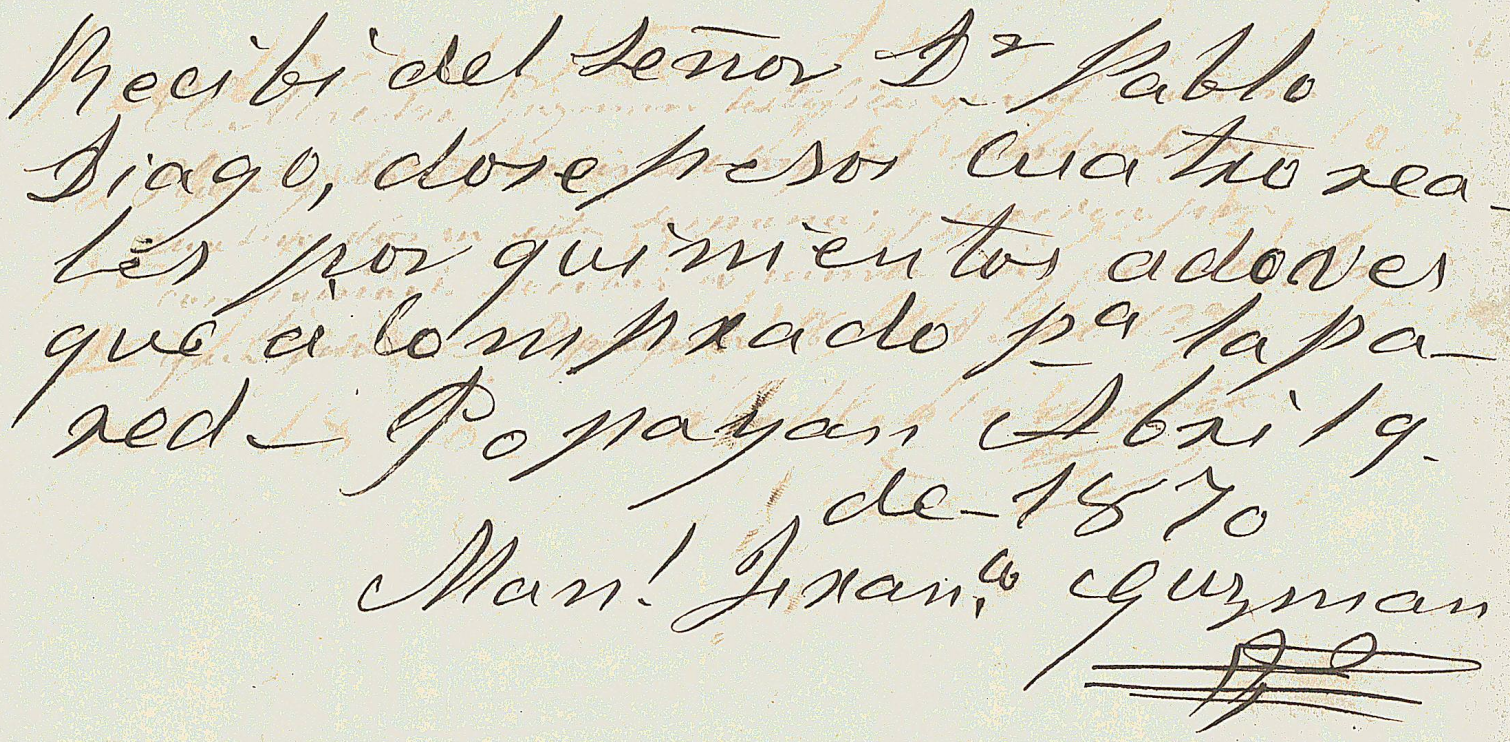 Recibi del Señor Dr Pablo
Diago, dose pesos cuatro rea-
les por quinientos adoves
que à comprado pa la pa-
red - Popayan Abril 9.
de - 1870
Manl. Franco. Guzman